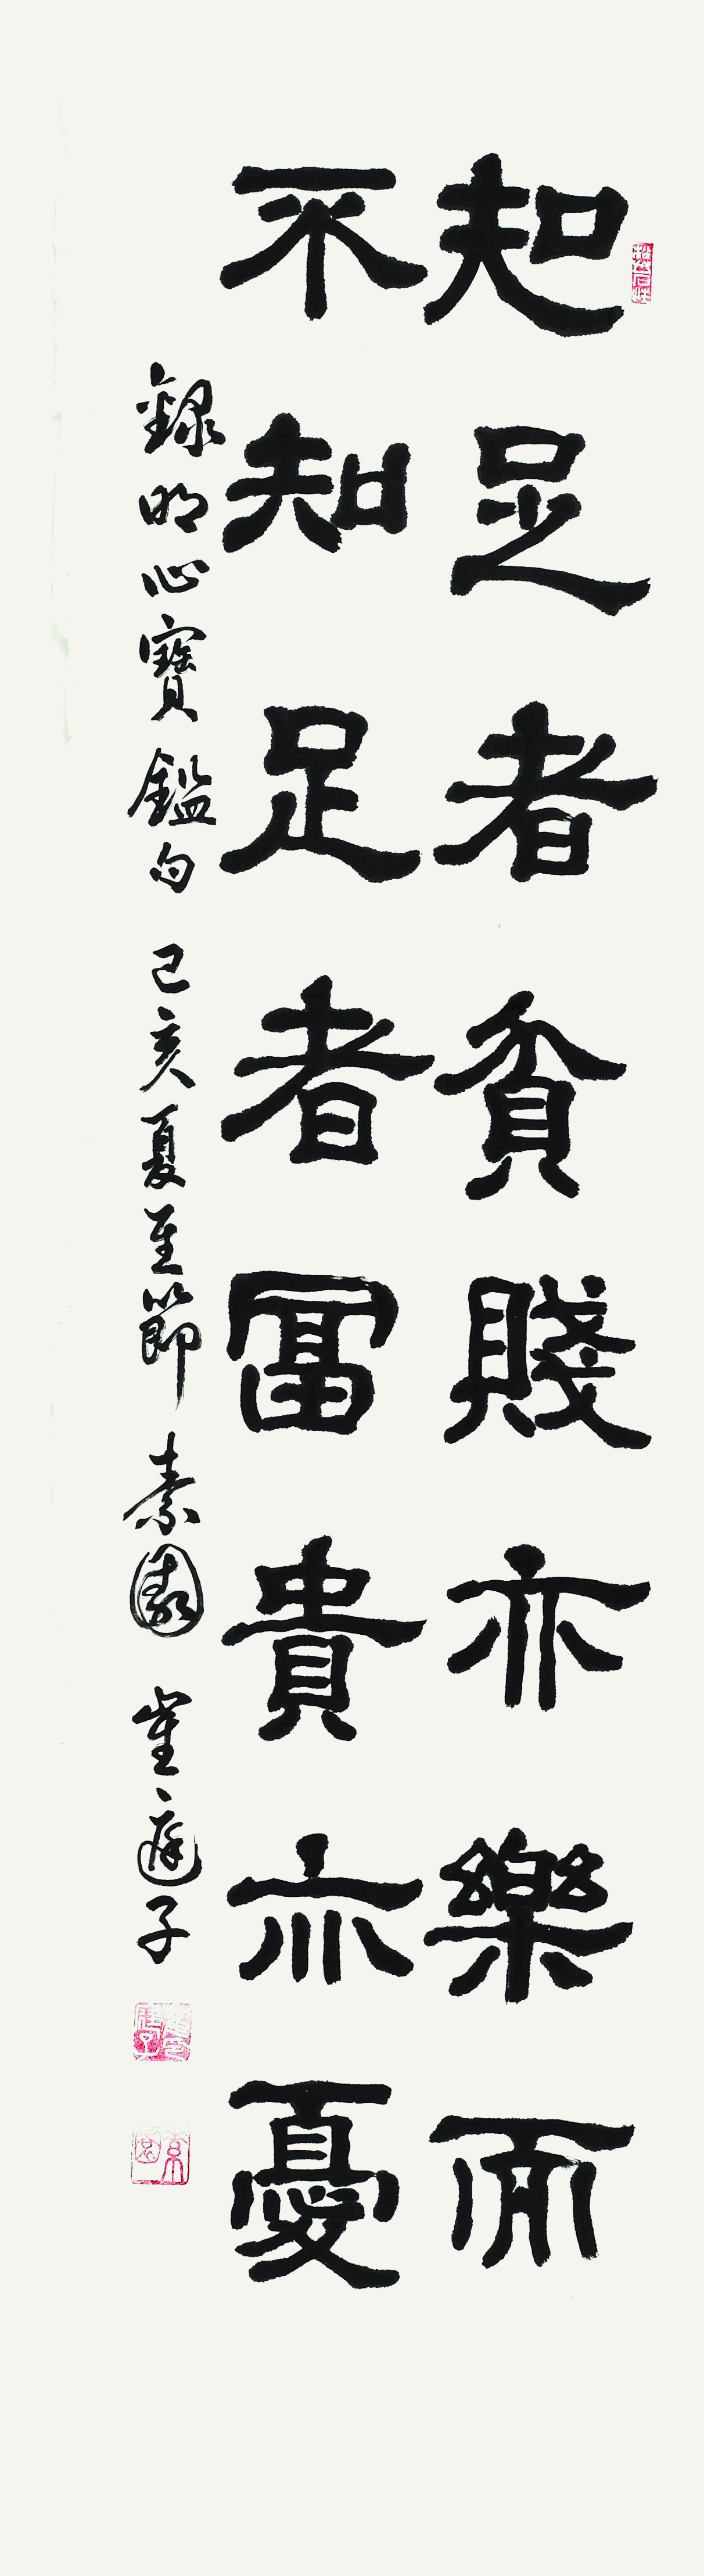 知足者貧賤亦樂而
不知足者冨貴亦憂
錄明心寶鑑句 己亥夏至節 素園 崔庭子
素園